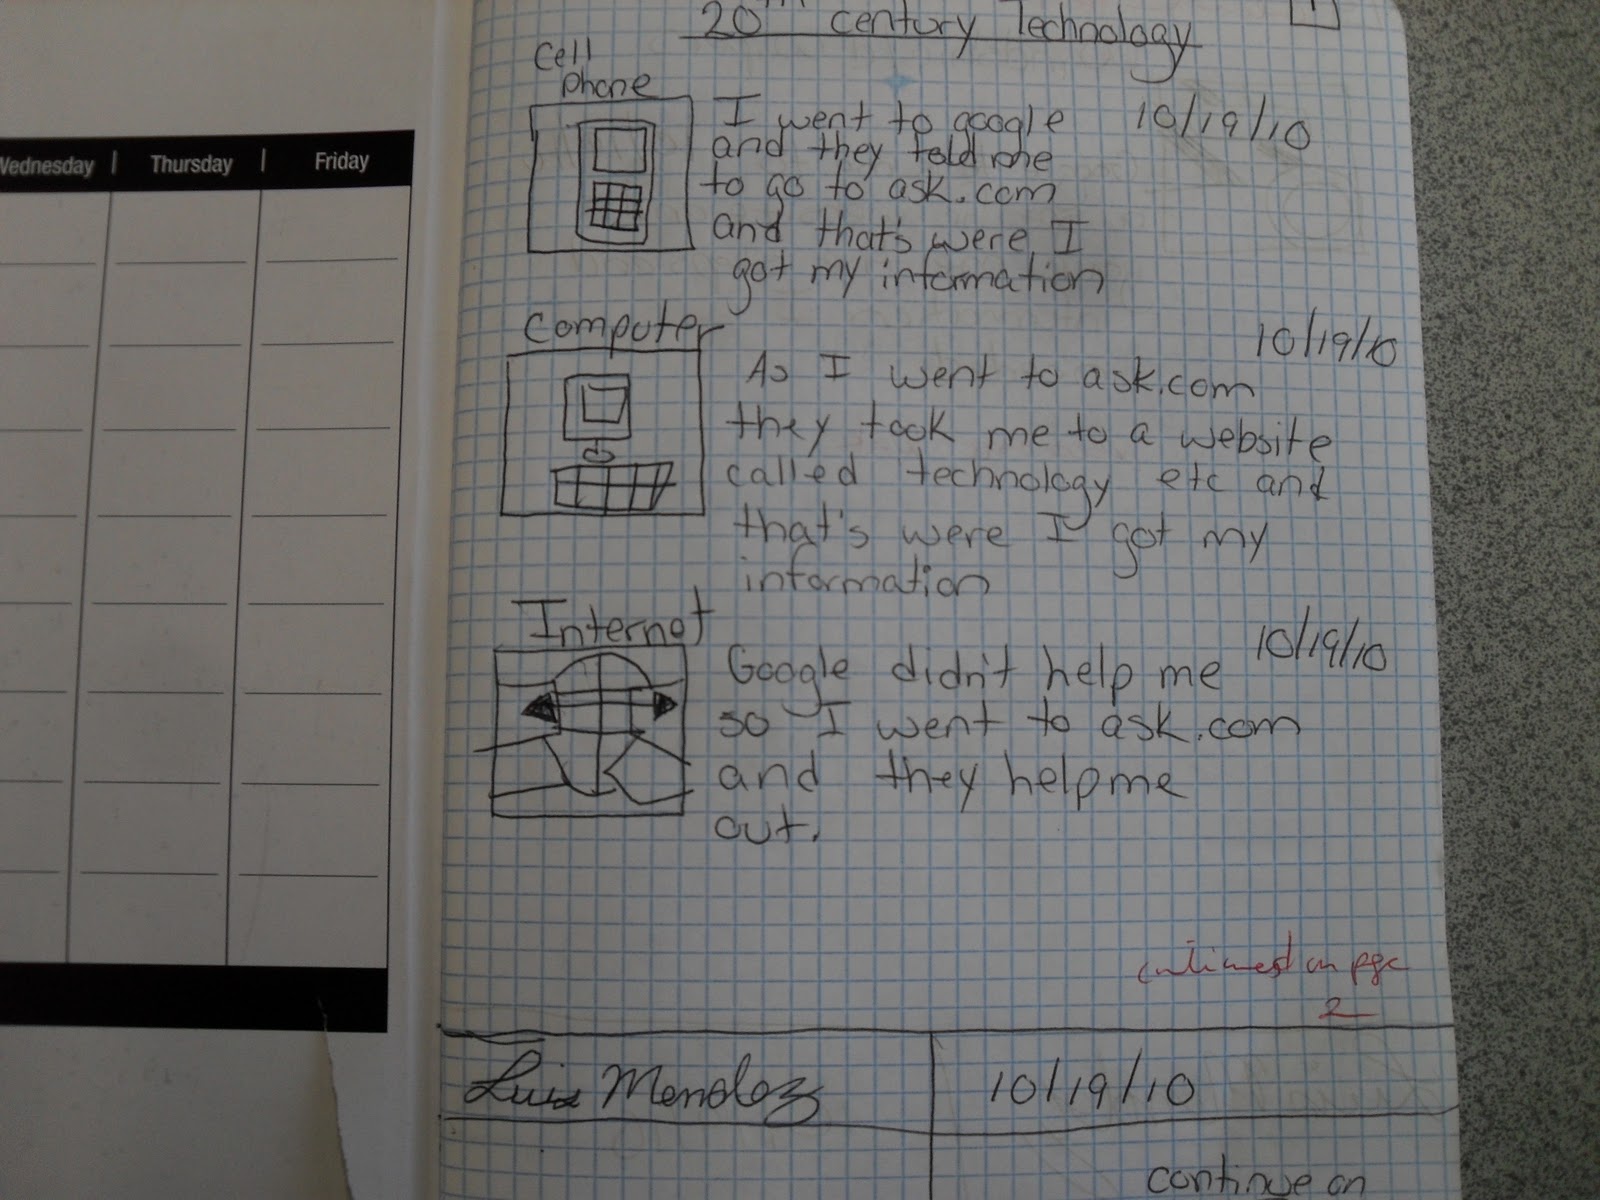 Wednesday | Thursday | Friday
20th century Technology
1
Cell
phone
I went to google
and they told me
to go to ask.com
and that's were I
got my information
10/19/10
Computer
As I went to ask.com
they took me to a website
called technology etc and
that's were I got my
information
10/19/10
Internet
Google didn't help me
so I went to ask.com
and they help me
out.
10/19/10
on pge
2
Luis Mendoz
10/19/10
continue on